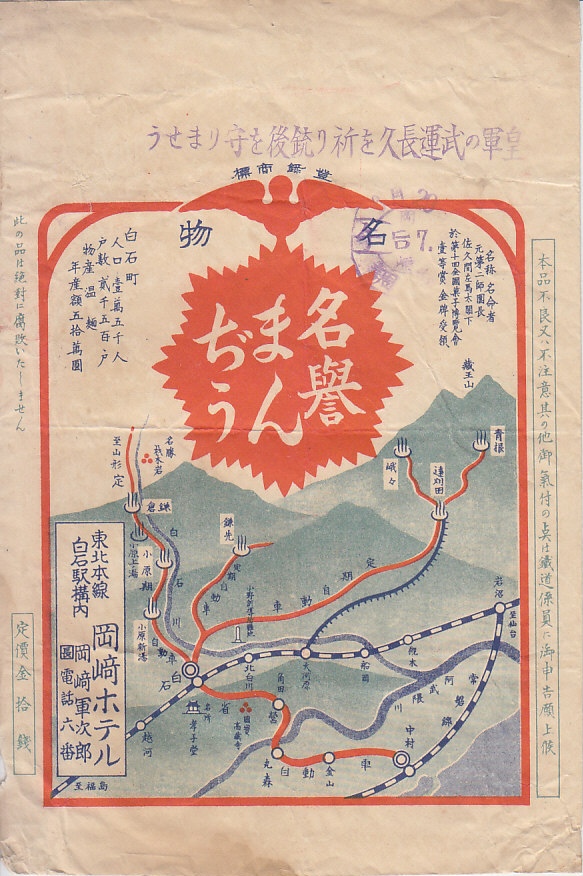 皇軍の武運長久を祈り銃後を守りませう
登録商標
名物
名称名命者
元第二師團長
佐久間左馬太閣下
於第十四全國菓子博覽会
壹等賞金牌受領
白石町
人口 壹萬五千人
戸數 貳千五百戸
物産 温麺
年産額五拾萬圓
名譽
まん
ぢう
本品不良又ハ不注意其の他御氣付の点は鐵道係員に御申告願上候
此の品は絶對に腐敗いたしません
定價金拾錢
藏王山
青根
遠刈田
峨々
名勝
材木岩
至山形
定
鎌倉
小原上湯
小原
期
小原新湯
自動
車
白
石
川
鎌先
定期
自動車
定
期
自
動
車
岩沼
至仙台
槻木
船岡
大河原
北白川
白石
越河
至福島
名所
孝子堂
國寶
高蔵寺
省
營
自
動
車
角田
丸森
金山
中村
常
磐
線
阿
武
隈
川
東北本線
白石駅構内
岡﨑ホテル
岡﨑軍次郎
園電話六番